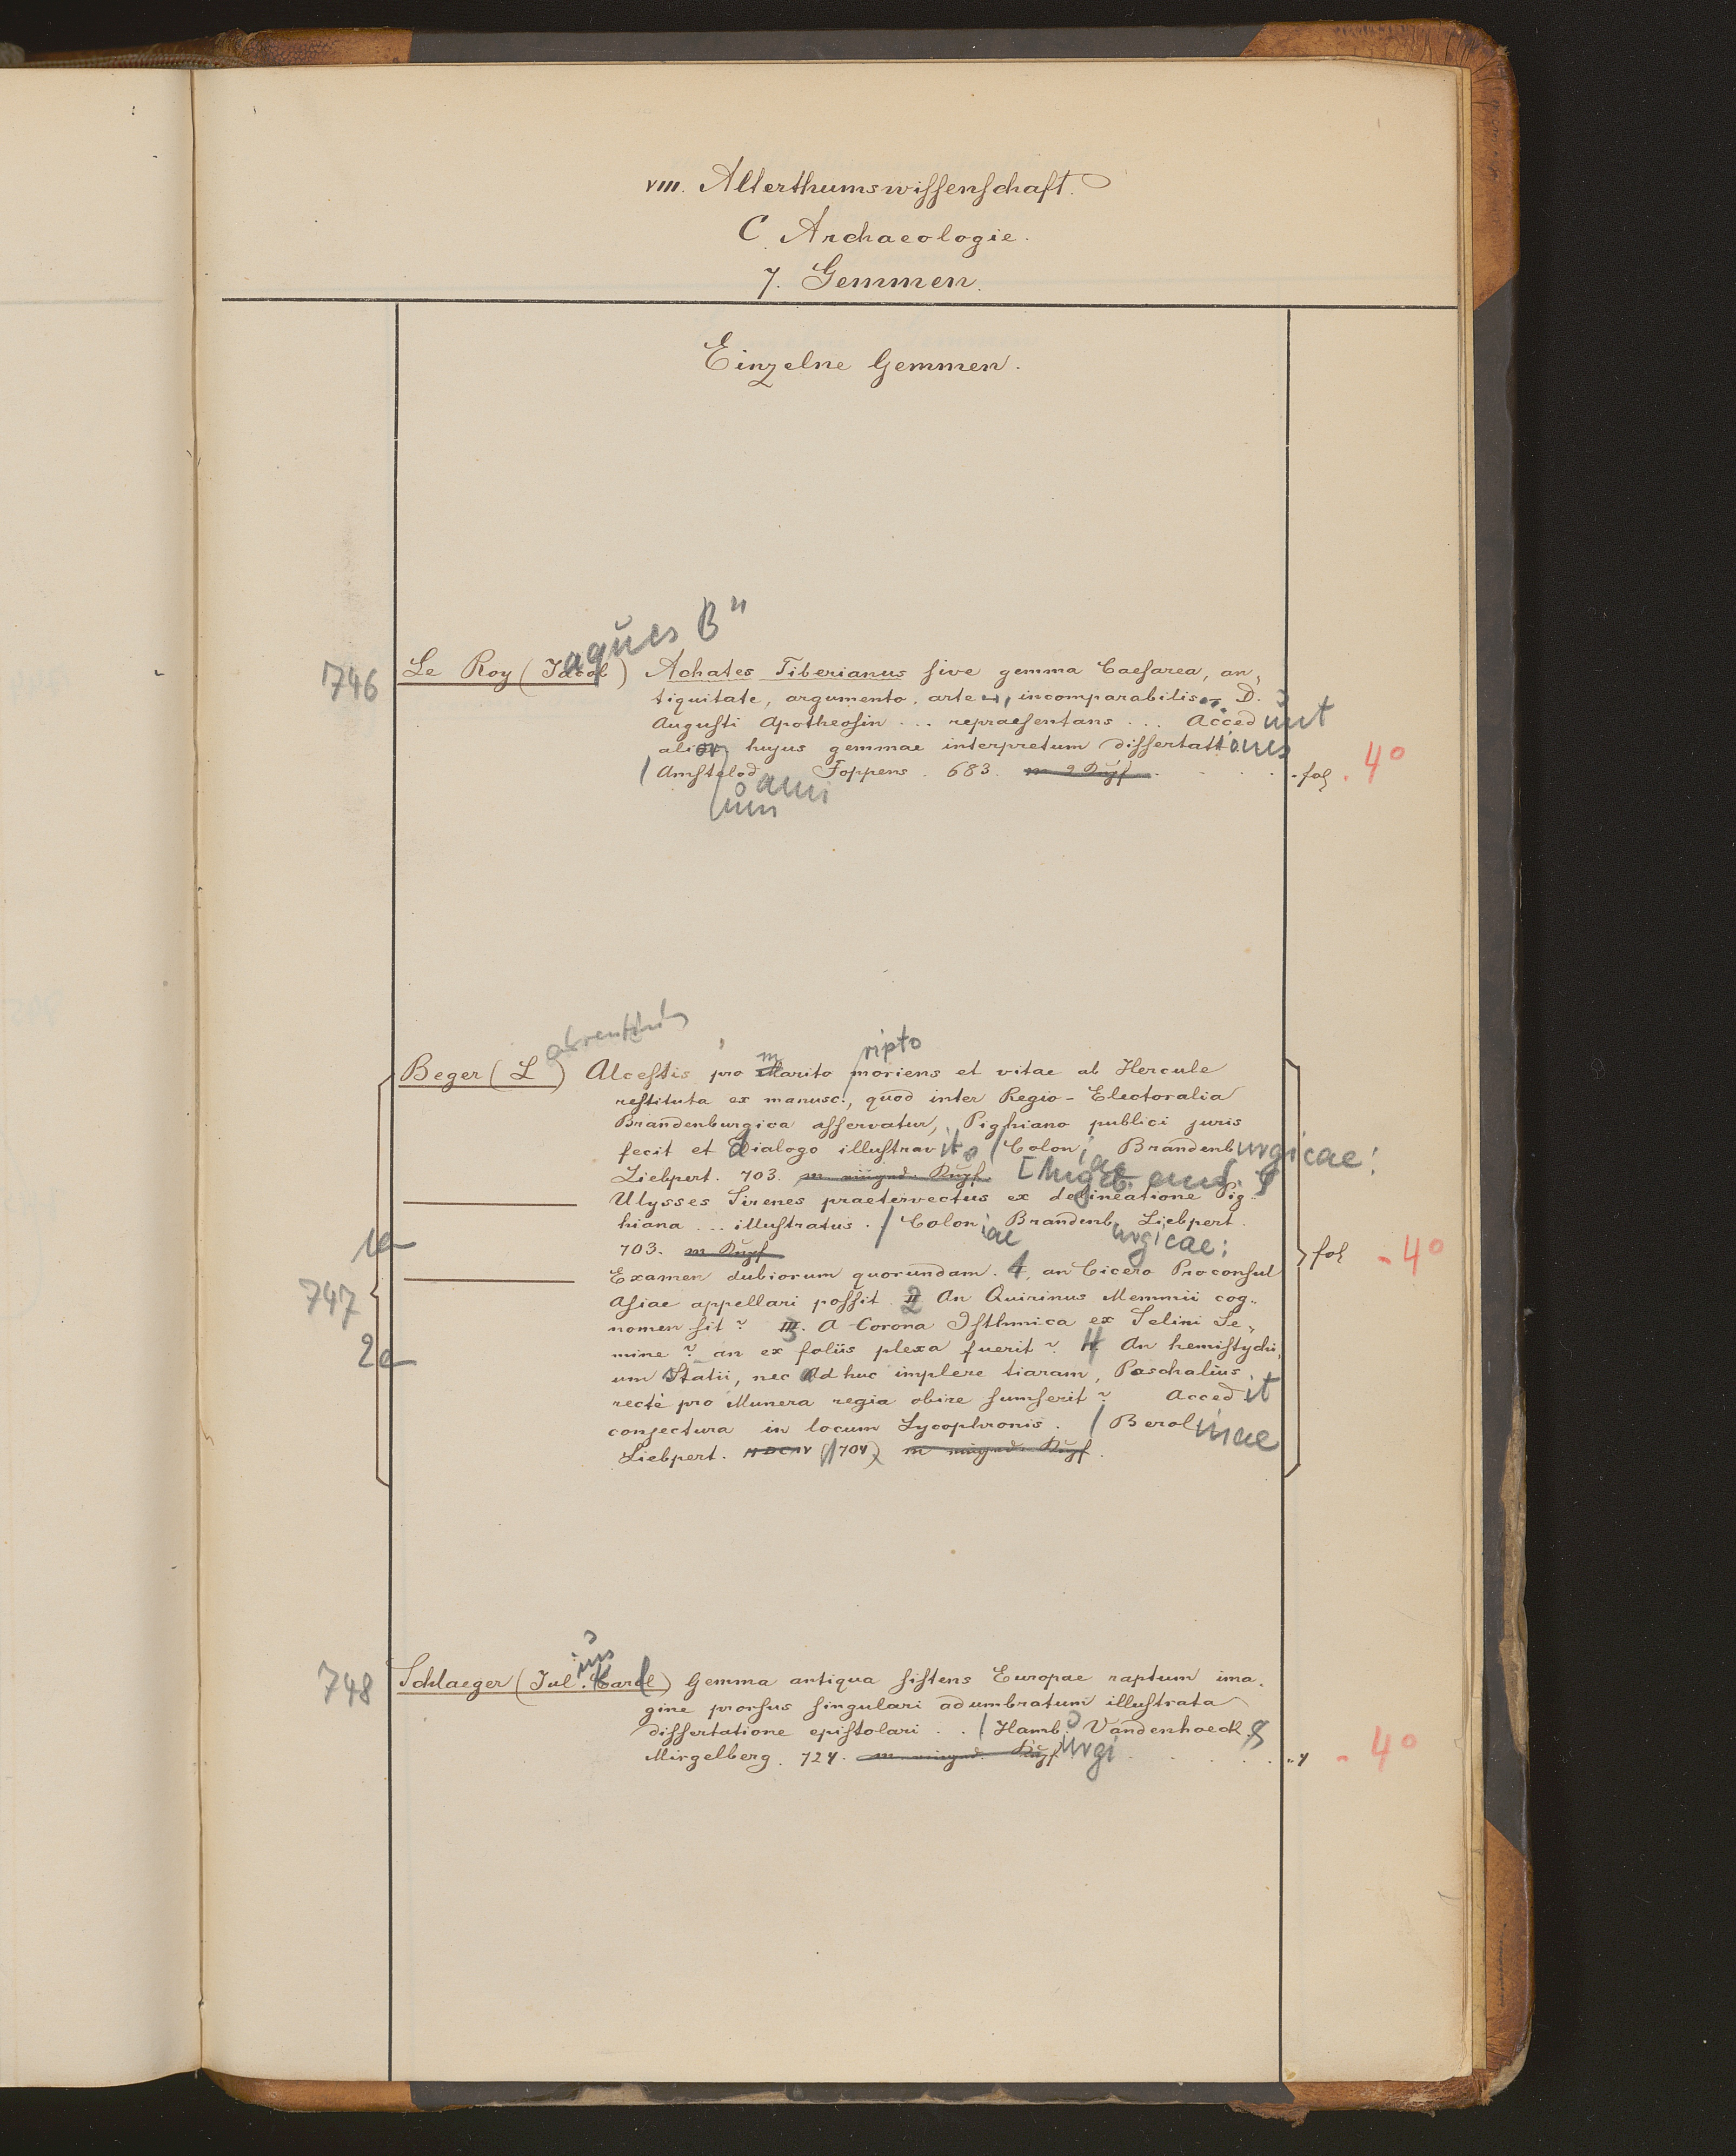 VIII. Alterthumswissenschaft.
C. Archaeologie.
7. Gemmen.
Einzelne Gemmen.
aques B"
746 Le Roy (Jacob) Achates Tiberianus sive gemma Caesarea, an„
tiquitate, argumento, arte, incomparabilis, D.
Augusti Apotheosin ... repraesentans ... Accedunt
alior hujus gemmae interpretum dissertationes
/ Amstelod Foppens. 683. m 2 Kupf. - fol. 4°
ami
aurentius
m ripto
Beger (L ) Alcestis pro Marito moriens et vitae ab Hercule
restituta ex manusc., quod inter Regio-Electoralia
Brandenburgica asservatur, Pighiano publici juris
fecit et dialogo illustravit / Colon Brandenburgicae:
iae
Liebpert. 703. m eingedr. Kupf.
Ulysses Sirenes praetervectus ex delineatione Pig„
hiana ... illustratus. / Colon Brandenb. Liebpert.
iae urgicae:
1a 703. m Kupf fol - 4°
Examen dubiorum quorundam. 1, an Cicero Proconsul
747 Asiae appellari possit. 2 An Quirinus Memmii cog„
nomen sit? 3. A Corona Isthmica ex Selini Se„
2a mine? an ex foliis plexa fuerit? 4 An hemistychi„
um Statii, nec adhuc implere tiaram, Paschalius
recte pro Munera regia obire sumserit? Accedit
conjectura in locum Lycophronis. / Berolinae
Liebpert. MDCCIV (1704) m eingedr. Kupf.
ius
748 Schlaeger (Jul. Carl) Gemma antiqua sistens Europae raptum ima„
gine prorsus singulari adumbratum illustrata
dissertatione epistolari .. / Hamb. Vandenhoeck &
Mirgelberg. 724. m eingedr. Kupf. „4 - 4°
urgi